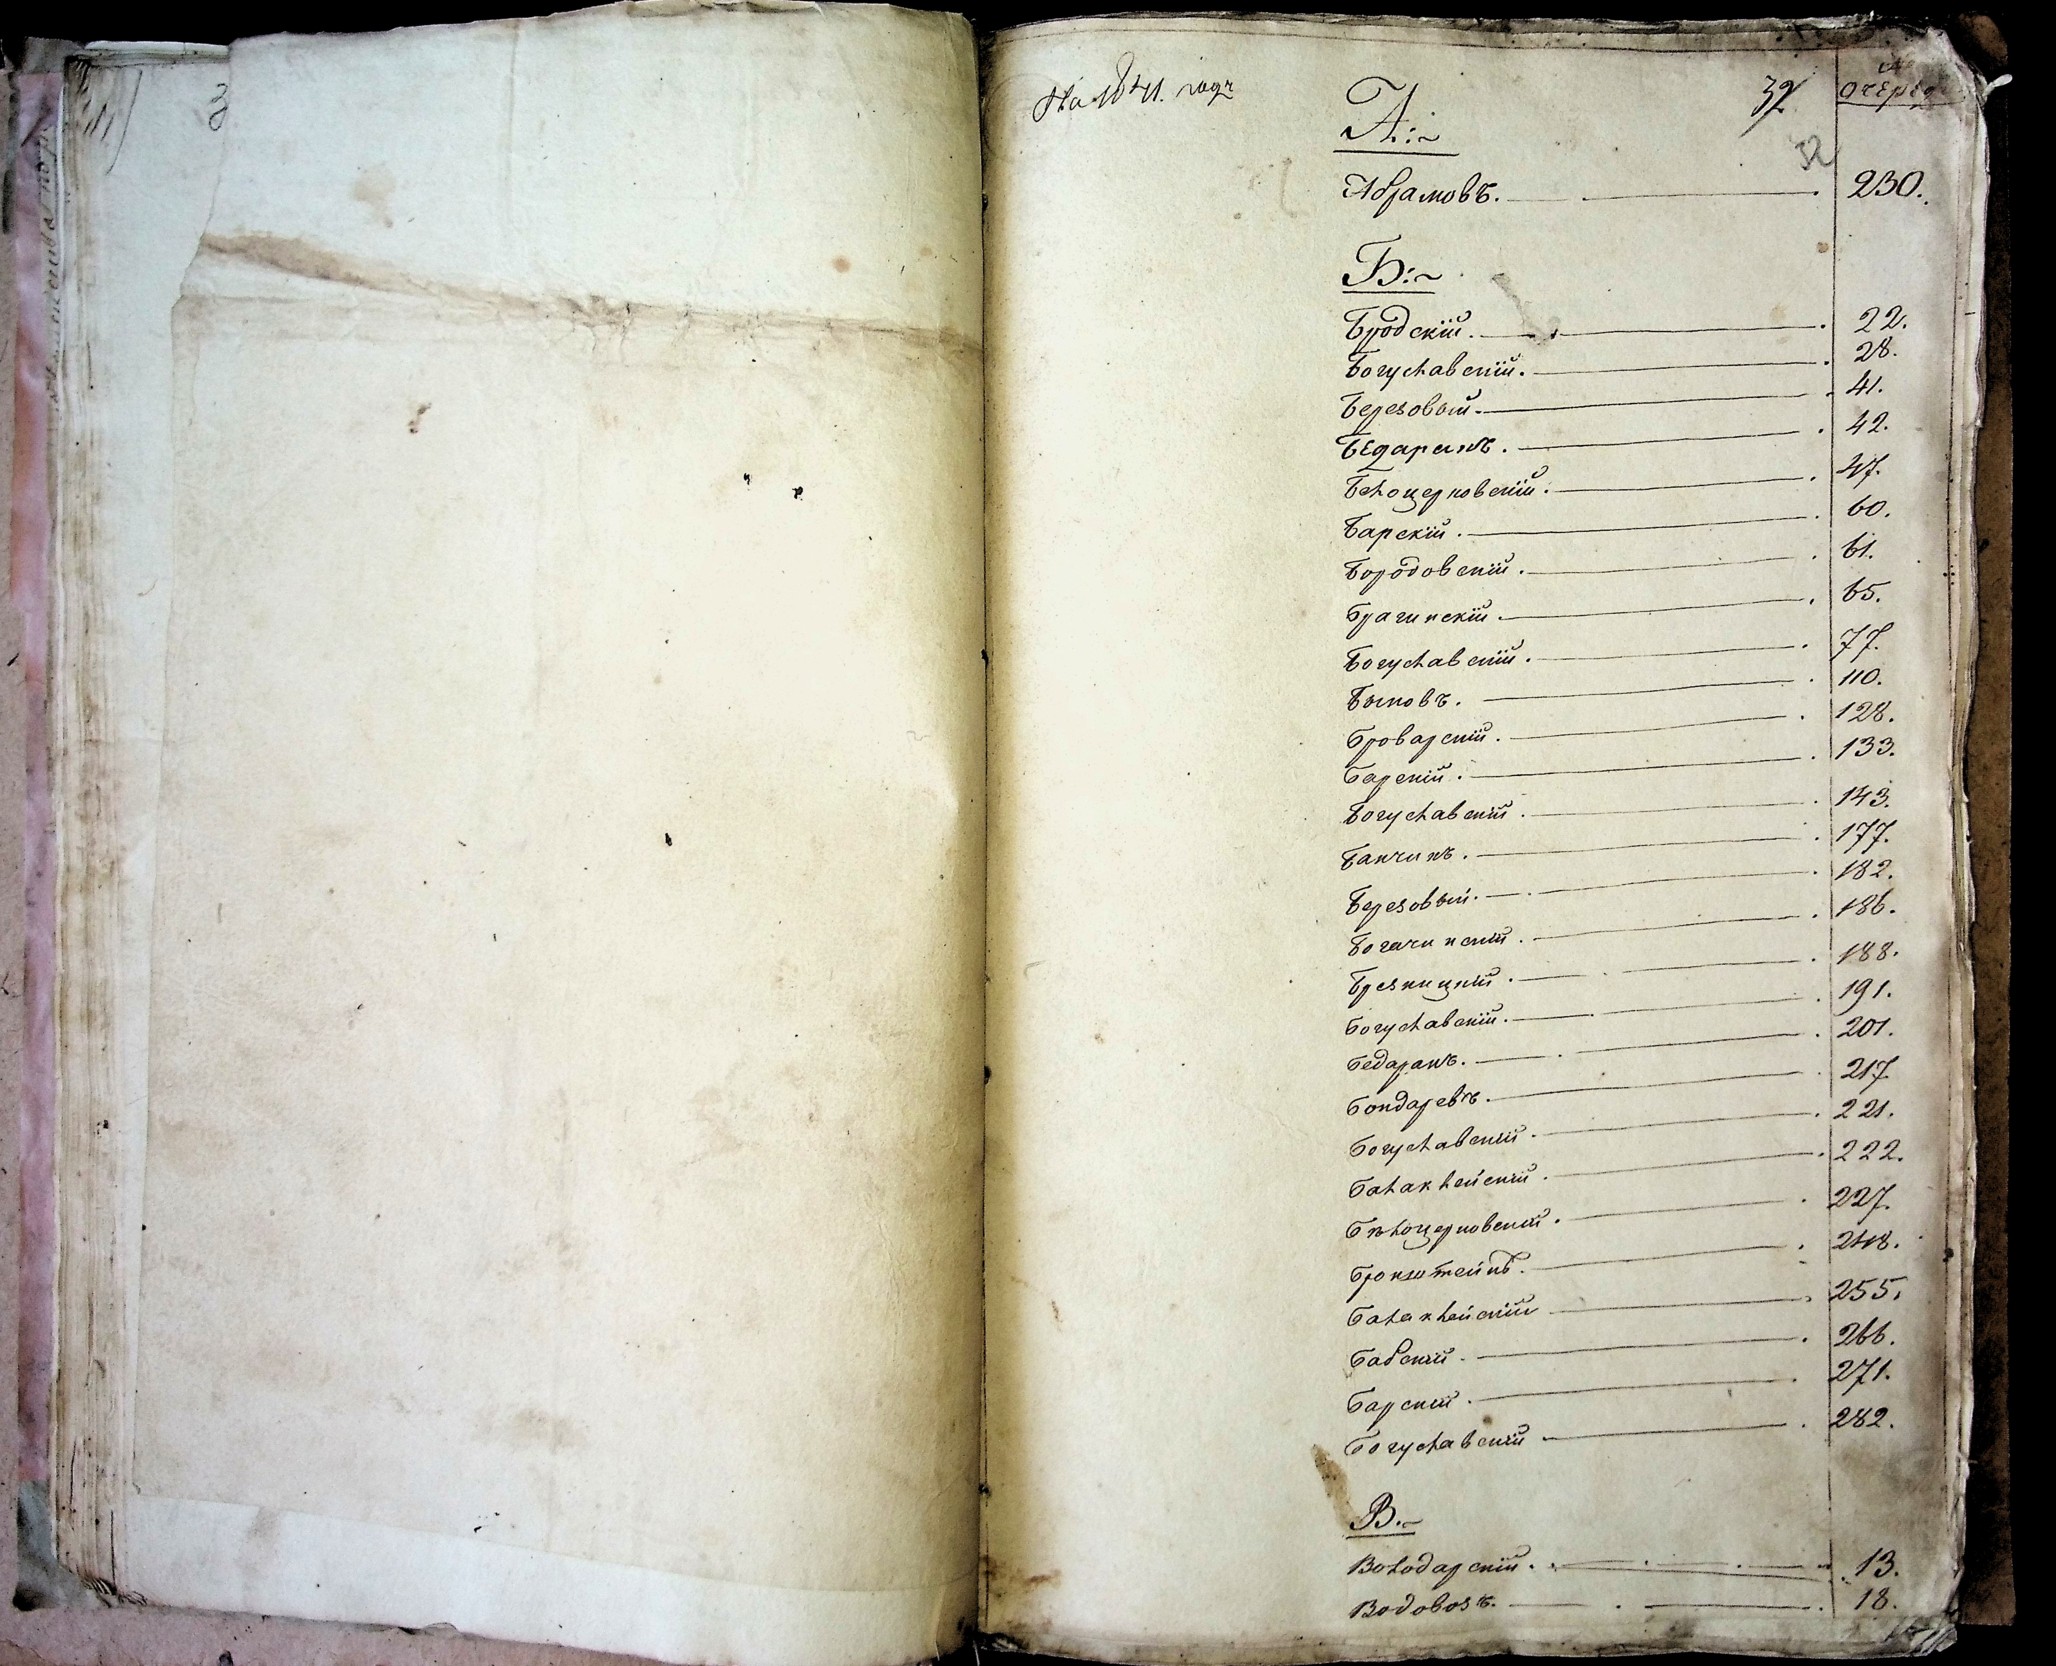 На 1841. годъ
32
32
А:~
очередь
Абрамовъ. 230.
Б:~
Бродскій. 22.
Богуславскій. 28.
Березовый. 41.
Бедаракъ. 42.
Белоцерковскій. 47.
Барскій. 60.
Бородовскій. 61.
Брагинскій. 65.
Богуславскій. 77.
Быковъ. 110.
Броварскій. 128.
Барскій. 133.
Богуславскій. 143.
Банчикъ. 177.
Березовый. 182.
Богачинскій. 186.
Брезницкій. 188.
Богуславскій. 191.
Бедаракъ. 201.
Бондаревъ. 217
Богуславскій. 221.
Балаклейскій. 222.
Бѣлоцерковскій. 227.
Бронштейнъ. 248.
Балаклейскій 255.
Бабскій. 266.
Барскій. 271.
Богуславскій 282.
В.~
Володарскій. 13.
Водовозъ. 18.